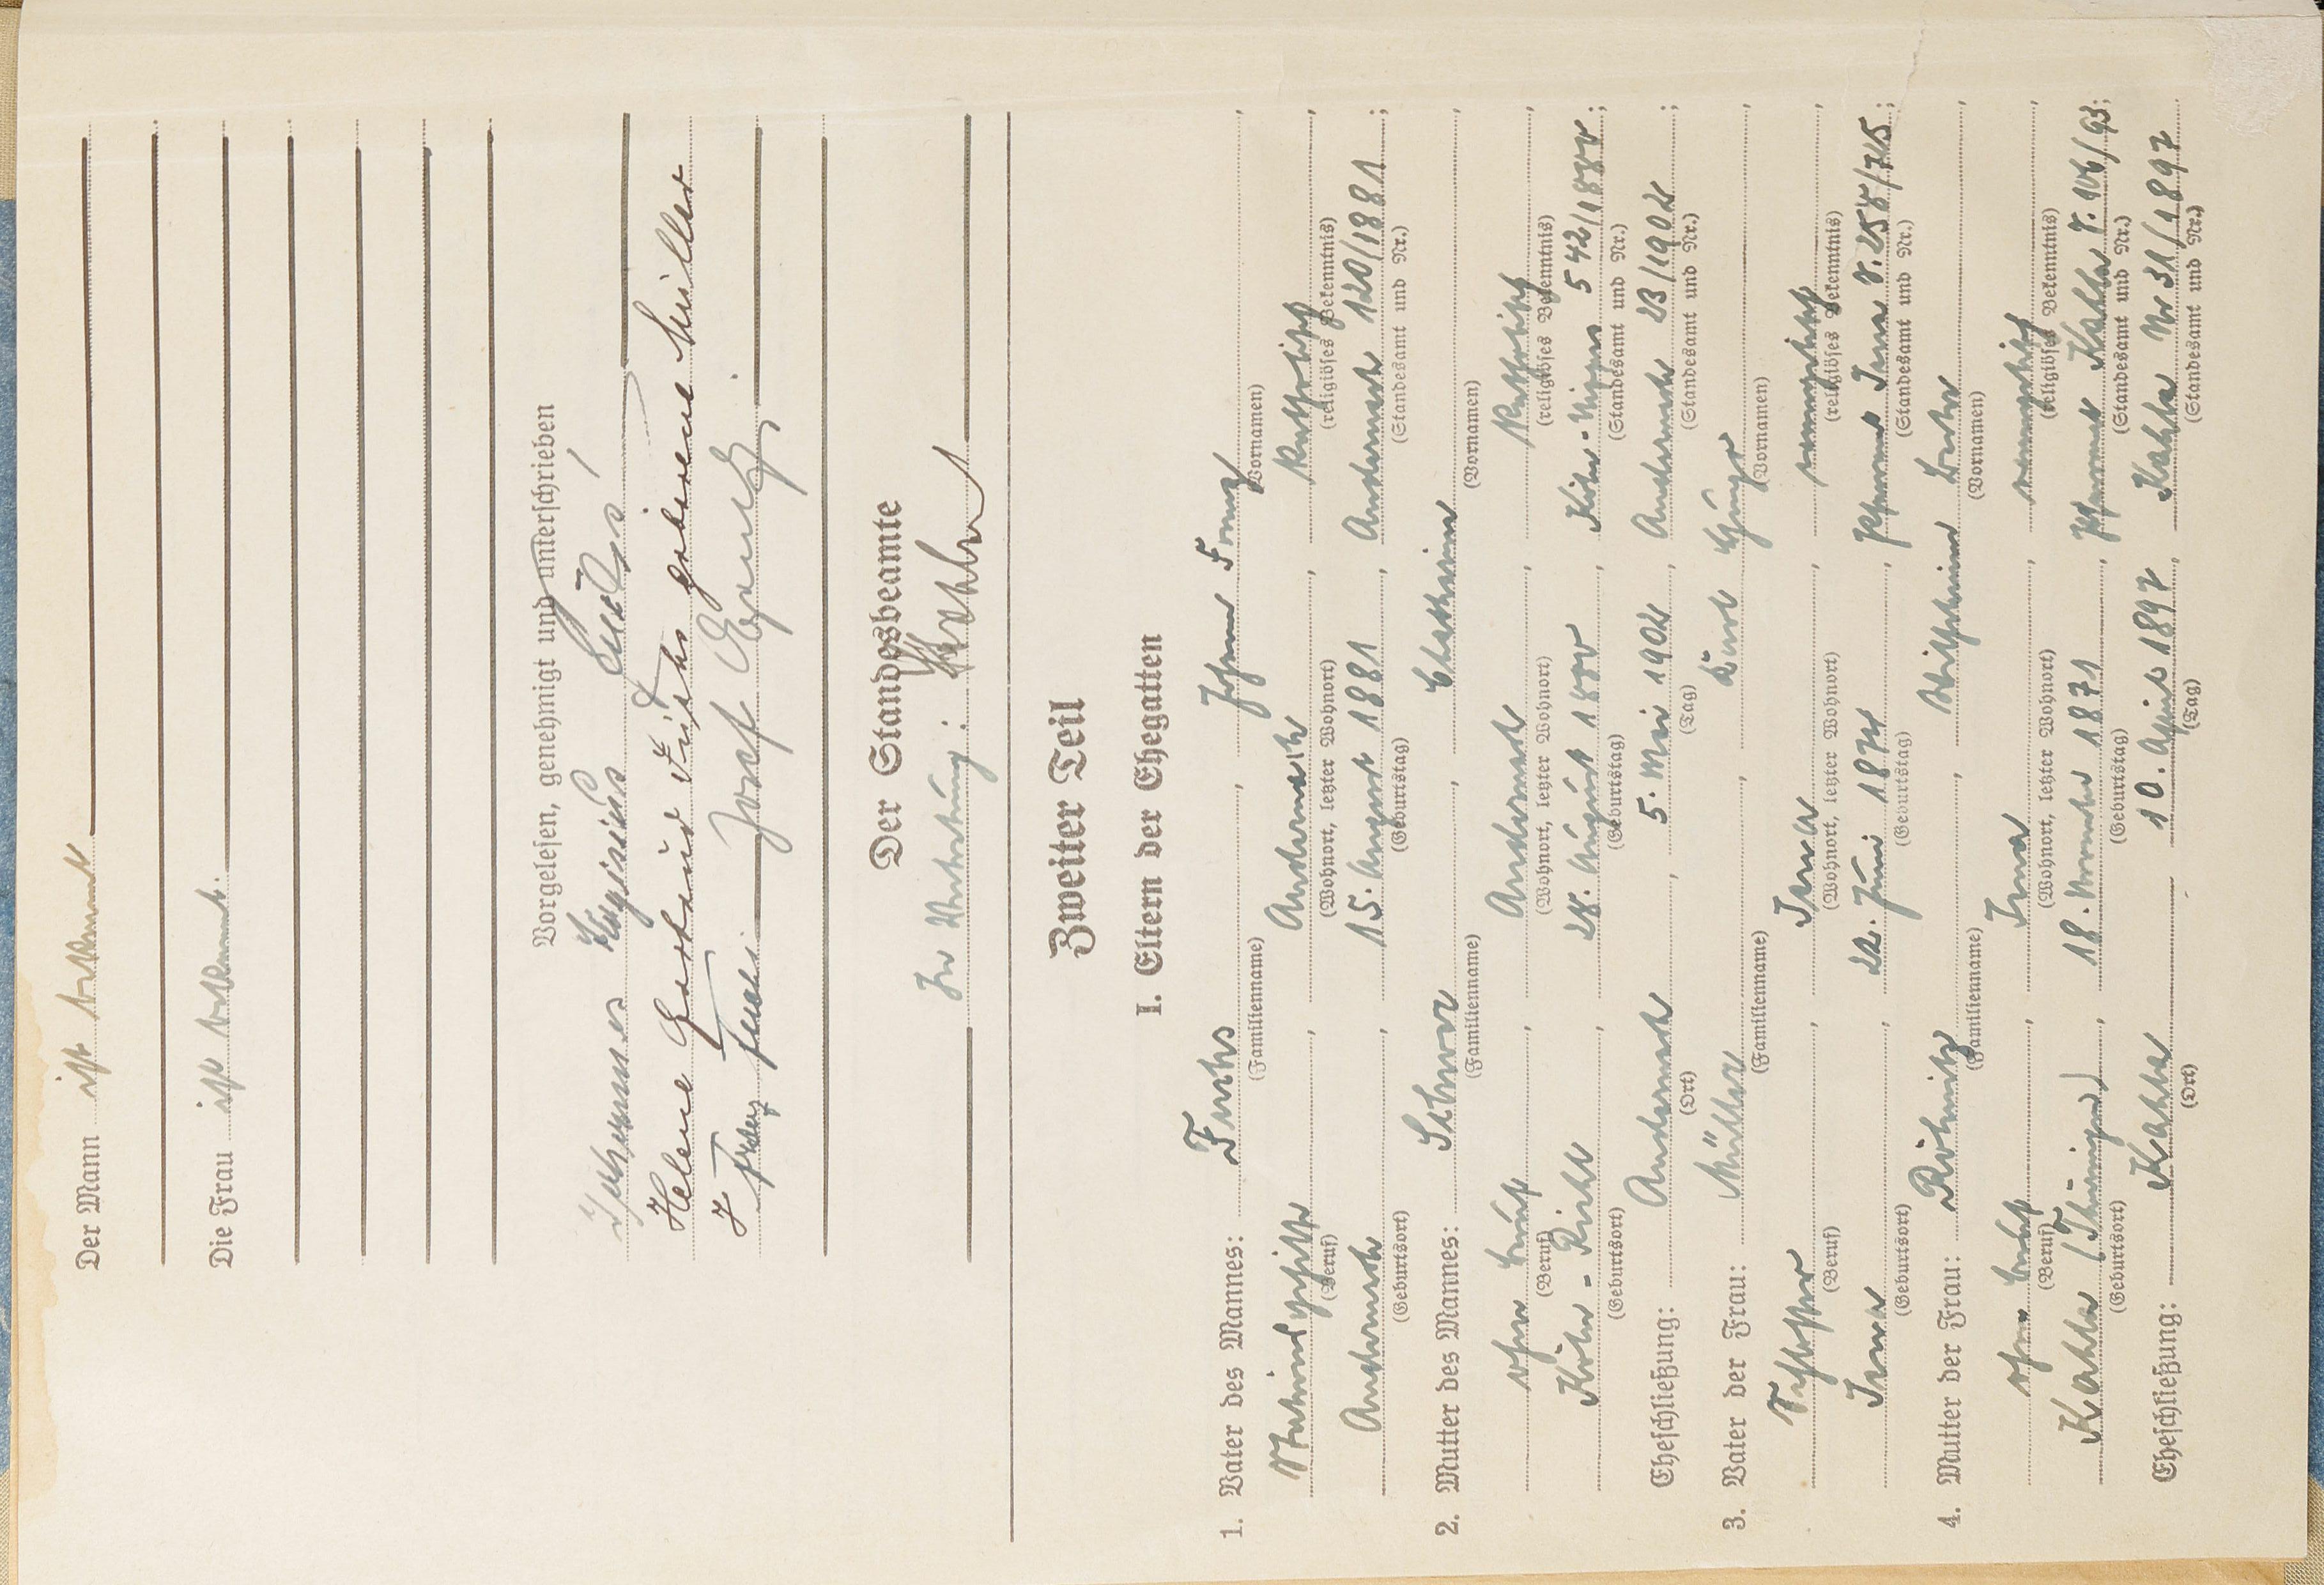 Der Mann ist bekannt
Die Frau ist bekannt.
Vorgelesen, genehmigt und unterschrieben
Johannes Fuchs
Helene Gertrud Fuchs geborene Müller
Fuchs Josef
Der Standesbeamte
In Vertretung:
Zweiter Teil
I. Eltern der Ehegatten
1. Vater des Mannes: Fuchs, Johann Franz,
(Familienname) (Vornamen)
, Andernach, katholisch,
(Beruf) (Wohnort, letzter Wohnort) (religiöses Bekenntnis)
Andernach, 15. August 1881, Andernach 120/1881;
(Geburtsort) (Geburtstag) (Standesamt und Nr.)
2. Mutter des Mannes: , Katharina,
(Familienname) (Vornamen)
ohne Beruf, Andernach, katholisch,
(Beruf) (Wohnort, letzter Wohnort) (religiöses Bekenntnis)
Köln-Riehl, 28. August 1888, Köln-Nippes 542/1888;
(Geburtsort) (Geburtstag) (Standesamt und Nr.)
Eheschließung: Andernach, 5. Mai 1902, Andernach 23/1902;
(Ort) (Tag) (Standesamt und Nr.)
3. Vater der Frau: Müller, Karl Hugo,
(Familienname) (Vornamen)
, Jena, evangelisch,
(Beruf) (Wohnort, letzter Wohnort) (religiöses Bekenntnis)
Jena, 22. Juni 1874, Pfarramt Jena S. 258/715;
(Geburtsort) (Geburtstag) (Standesamt und Nr.)
4. Mutter der Frau: , Wilhelmine Berta,
(Familienname) (Vornamen)
ohne Beruf, Jena, evangelisch,
(Beruf) (Wohnort, letzter Wohnort) (religiöses Bekenntnis)
Kahla (Thüringen), 18. 1871, Pfarramt Kahla S. 106/93;
(Geburtsort) (Geburtstag) (Standesamt und Nr.)
Eheschließung: Kahla, 10. April 1897, Kahla Nr 31/1897
(Ort) (Tag) (Standesamt und Nr.)